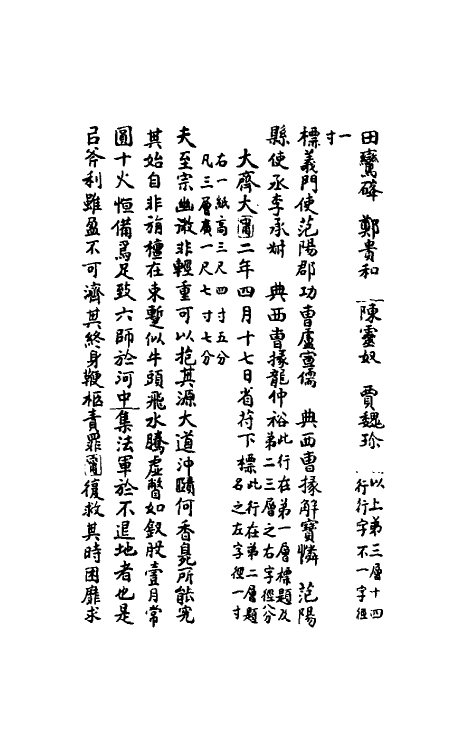 田鸞磚　鄭貴和　陳靈奴　賈魏珎　以上第三層十四行行字不一字徑
一寸
標義門使范陽郡功曹盧宣儒　典西曹掾解寶憐　范陽
縣使丞李承㸙　典西曹掾龍仲裕此行在第一層標題及第二三層之右字徑八分
大齊大寧二年四月十七日省符下標此行在第二層題名之左字徑一寸
右一紙高三尺四寸五分凡三層廣一尺七寸七分
夫至宗幽㣲非輕重可以挹其源大道沖賾何香臭所能究
其始自非旃檀在束蹔似牛頭飛水騰虛瞥如釵股壹月常
圓十火恒備焉足致六師於河中集法軍於不退地者也是
㠯斧利雖盈不可濟其終身鞭柩責罪寧復救其時困靡求